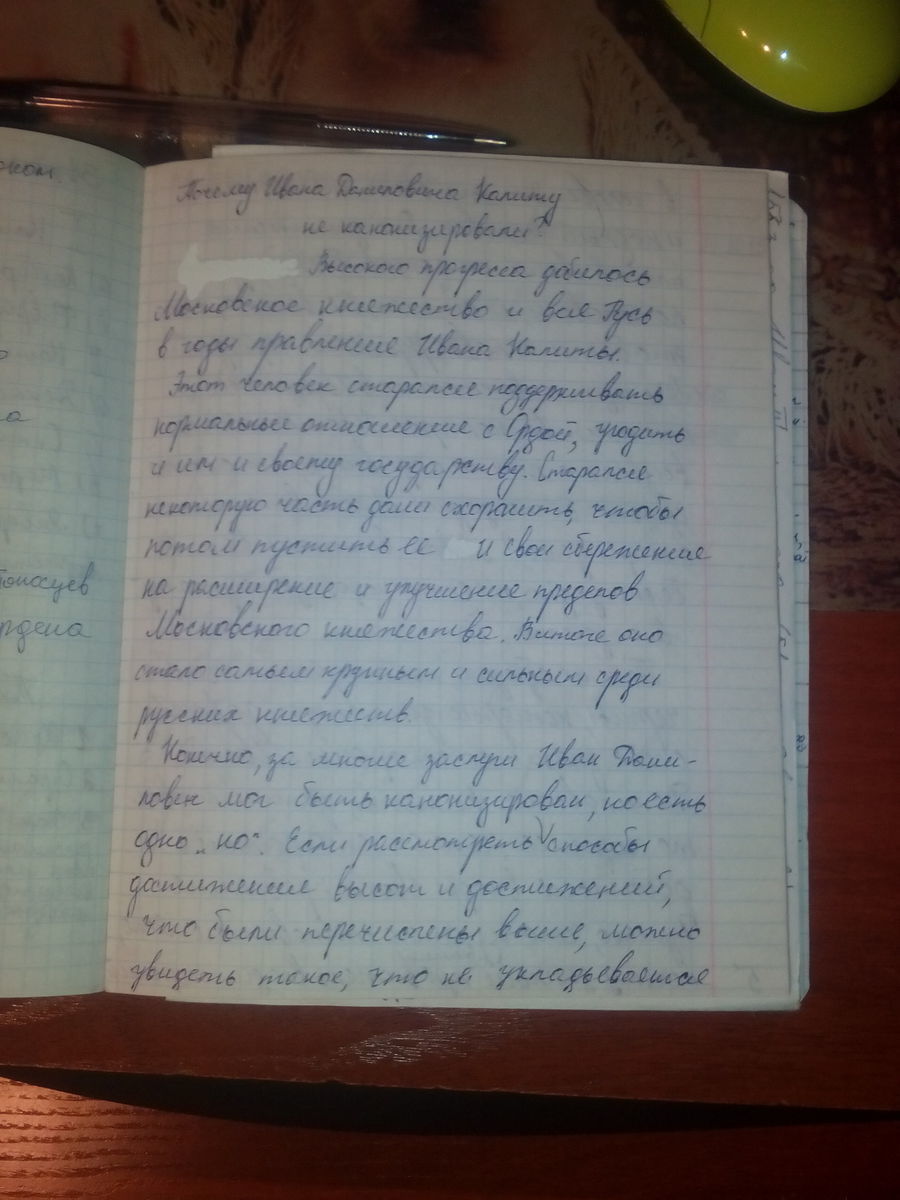 оном.
Почему Ивана Даниловича Калиту
не канонизировали?
Высокого прогресса добилось
Московское княжество и вся Русь
в годы правления Ивана Калиты.
Этот человек старался поддерживать
нормальные отношения с Ордой, угодить
и им и своему государству. Старался
некоторую часть дани схоранить, чтобы
потом пустить её и свои сбережения
на расширение и улучшение пределов
Московского княжества. Витоге оно
стало самым крупным и сильным среди
русских княжеств.
Конечно, за многие заслуги Иван Дани-
лович мог быть канонизирован, но есть
одно „но“. Если рассмотреть способы
достижения высот и достижений,
что были перечислены выше, можно
увидеть такое, что не укладывается